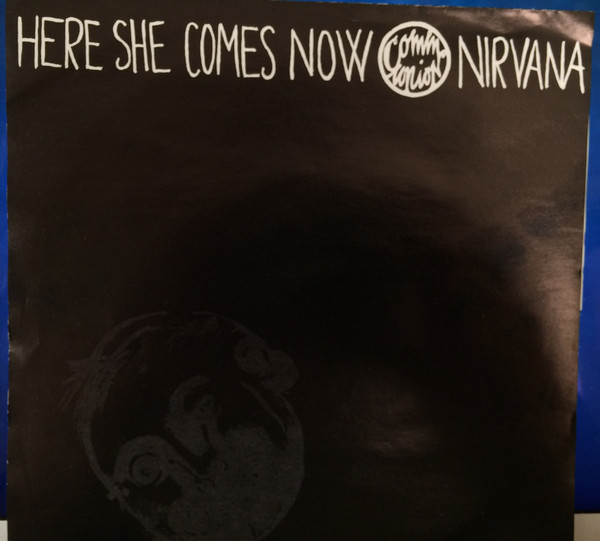 HERE SHE COMES NOW Communion NIRVANA